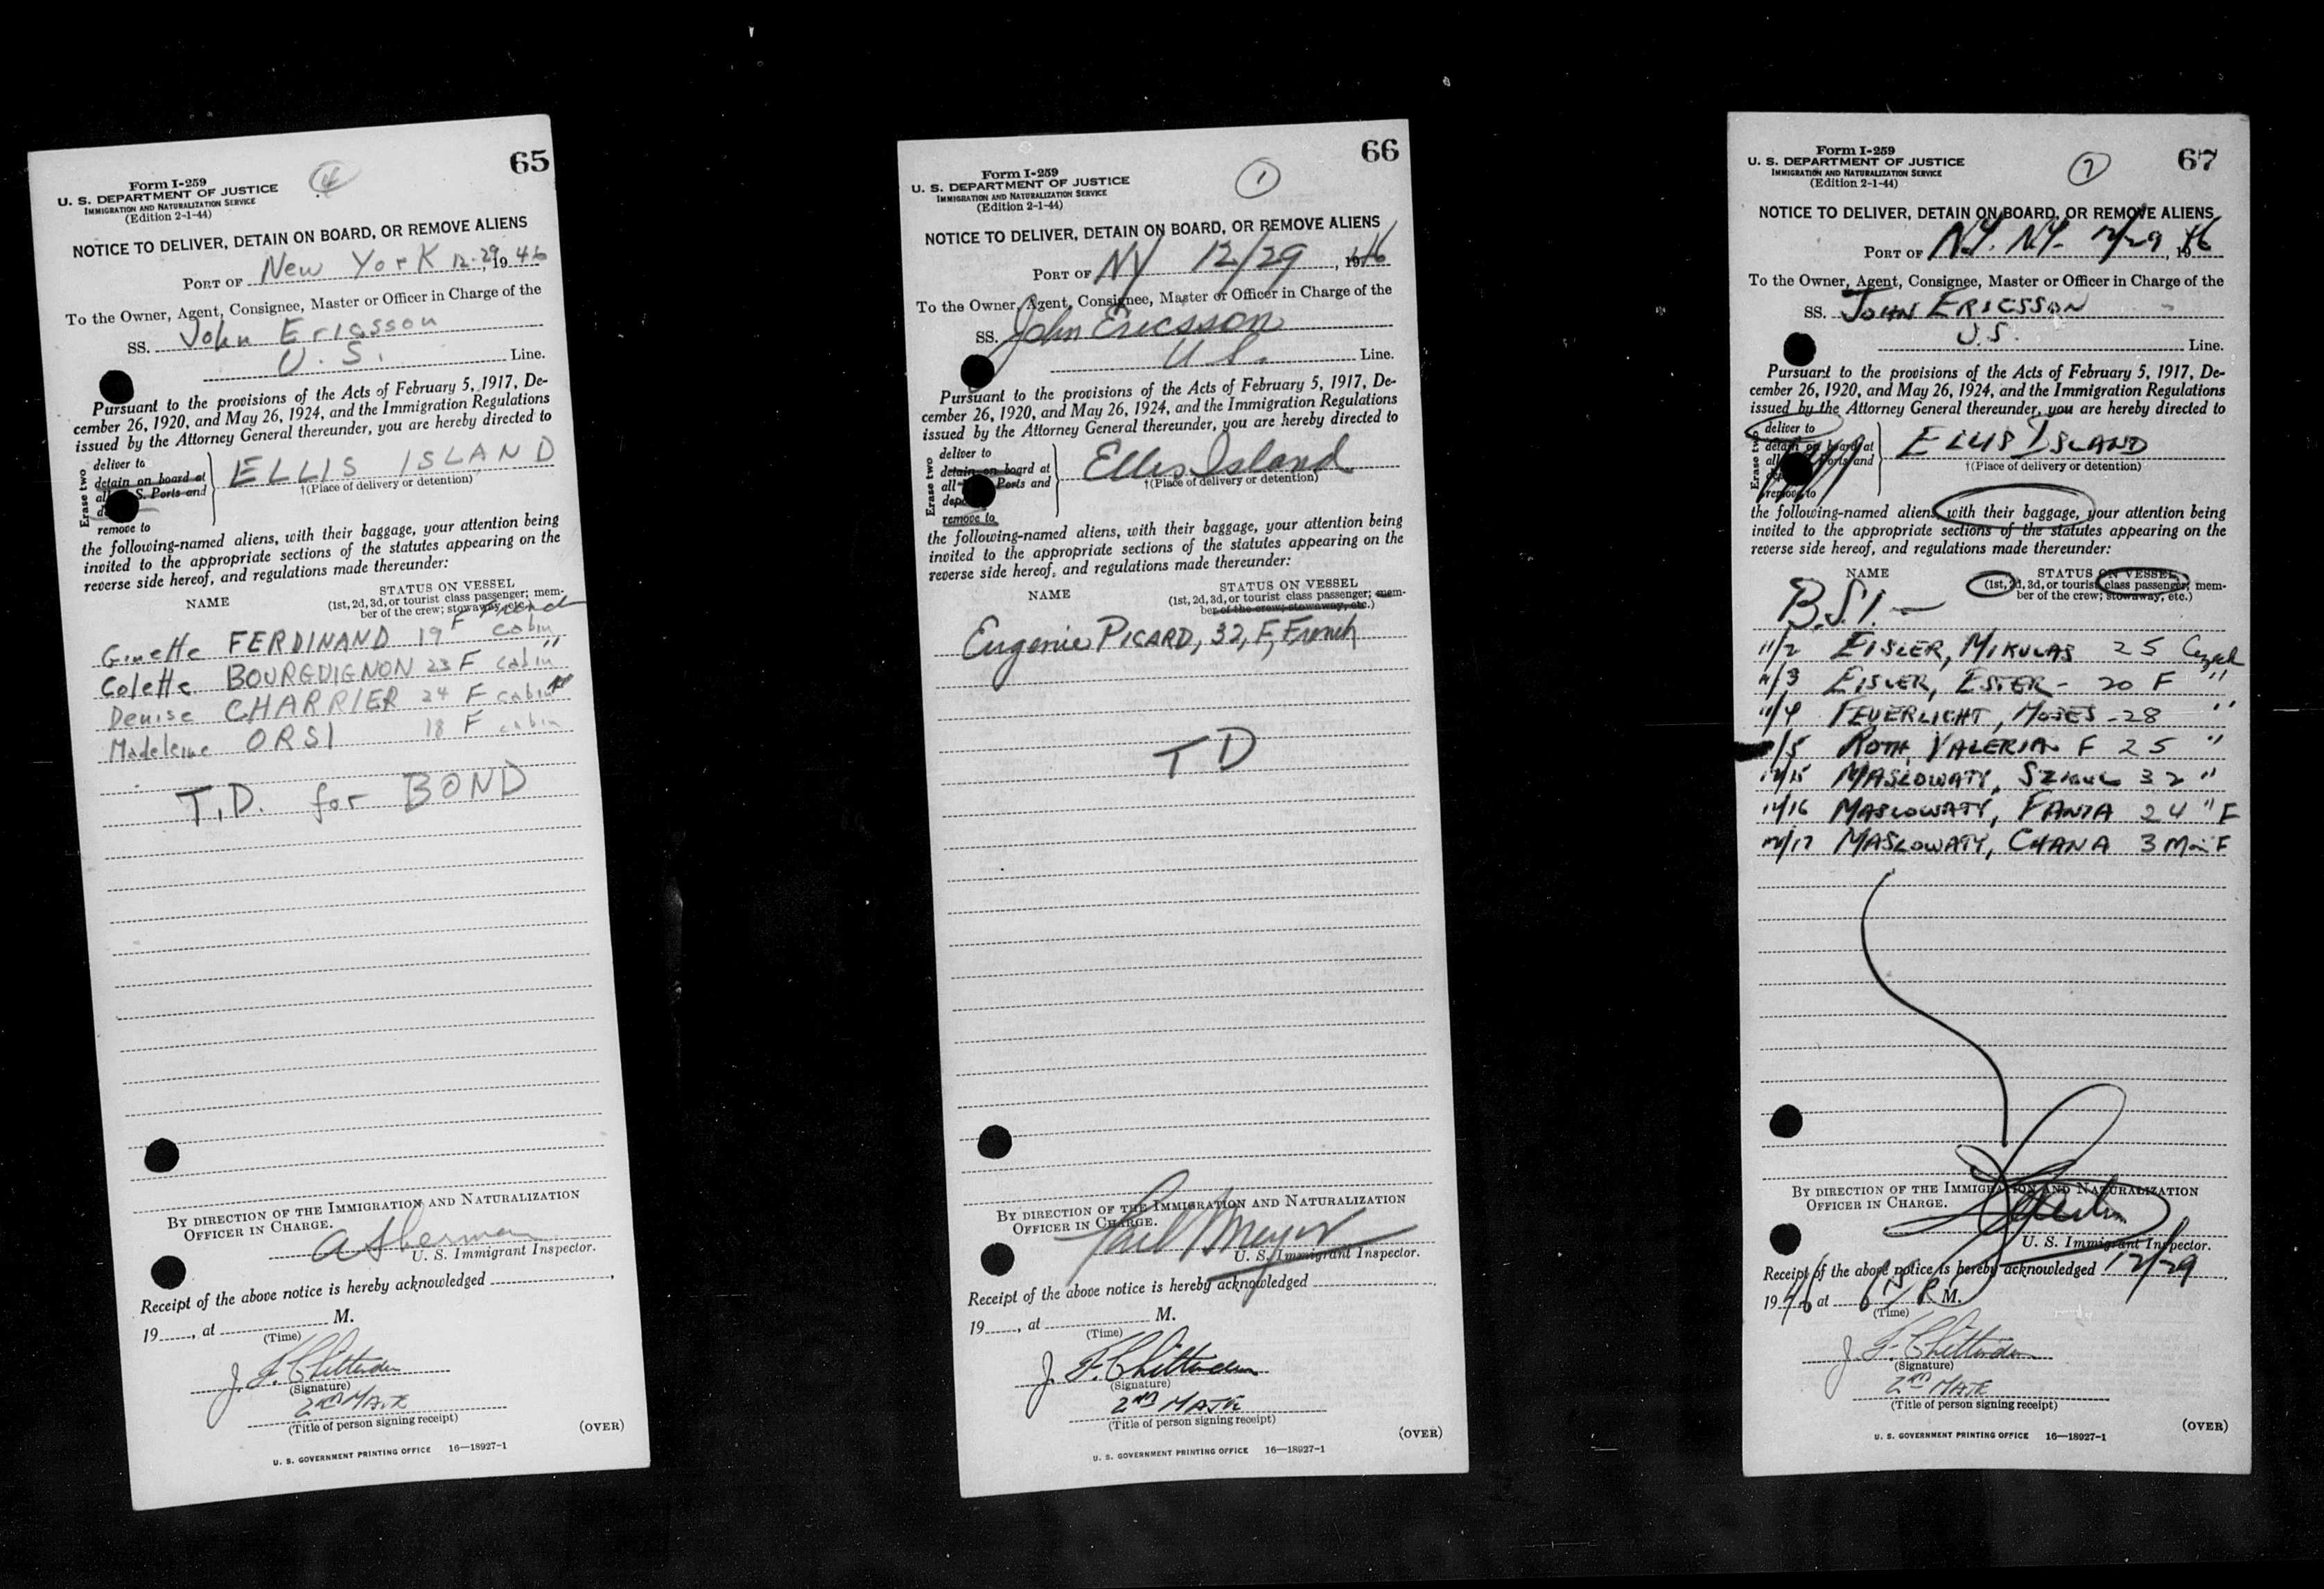 65
Form I-259
U. S. DEPARTMENT OF JUSTICE
IMMIGRATION AND NATURALIZATION SERVICE
(Edition 2-1-44)
4
NOTICE TO DELIVER, DETAIN ON BOARD, OR REMOVE ALIENS
PORT OF New York 12-29, 1946
To the Owner, Agent, Consignee, Master or Officer in Charge of the
SS. John Ericsson
U.S. Line.
Pursuant to the provisions of the Acts of February 5, 1917, De-
cember 26, 1920, and May 26, 1924, and the Immigration Regulations
issued by the Attorney General thereunder, you are hereby directed to
Erase two
deliver to
detain on board at
all S. Ports and
remove to
ELLIS ISLAND
†(Place of delivery or detention)
the following-named aliens, with their baggage, your attention being
invited to the appropriate sections of the statutes appearing on the
reverse side hereof, and regulations made thereunder:
NAME
STATUS ON VESSEL
(1st, 2d, 3d, or tourist class passenger; mem-
ber of the crew; stowaway, etc.)
Ginette FERDINAND 19 F French cabin
Colette BOURGUIGNON 23 F cabin "
Denise CHARRIER 24 F cabin
Madeleine ORSI 18 F cabin
T.D. for BOND
BY DIRECTION OF THE IMMIGRATION AND NATURALIZATION
OFFICER IN CHARGE.
A Sherman
U. S. Immigrant Inspector.
Receipt of the above notice is hereby acknowledged
19 , at M.
(Time)
J. F. Chittenden
(Signature)
2nd MATE
(Title of person signing receipt)
(OVER)
U. S. GOVERNMENT PRINTING OFFICE 16—18927-1
66
Form I-259
U. S. DEPARTMENT OF JUSTICE
IMMIGRATION AND NATURALIZATION SERVICE
(Edition 2-1-44)
1
NOTICE TO DELIVER, DETAIN ON BOARD, OR REMOVE ALIENS
PORT OF NY 12/29, 1946
To the Owner, Agent, Consignee, Master or Officer in Charge of the
SS. John Ericsson
U S. Line.
Pursuant to the provisions of the Acts of February 5, 1917, De-
cember 26, 1920, and May 26, 1924, and the Immigration Regulations
issued by the Attorney General thereunder, you are hereby directed to
Erase two
deliver to
detain on board at
all Ports and
remove to
Ellis Island
†(Place of delivery or detention)
the following-named aliens, with their baggage, your attention being
invited to the appropriate sections of the statutes appearing on the
reverse side hereof, and regulations made thereunder:
NAME
STATUS ON VESSEL
(1st, 2d, 3d, or tourist class passenger; mem-
ber of the crew; stowaway, etc.)
Eugenie PICARD, 32, F, French
T D
BY DIRECTION OF THE IMMIGRATION AND NATURALIZATION
OFFICER IN CHARGE.
U. S. Immigrant Inspector.
Receipt of the above notice is hereby acknowledged
19 , at M.
(Time)
J. F. Chittenden
(Signature)
2nd MATE
(Title of person signing receipt)
(OVER)
U. S. GOVERNMENT PRINTING OFFICE 16—18927-1
67
Form I-259
U. S. DEPARTMENT OF JUSTICE
IMMIGRATION AND NATURALIZATION SERVICE
(Edition 2-1-44)
7
NOTICE TO DELIVER, DETAIN ON BOARD, OR REMOVE ALIENS
PORT OF N.Y. N.Y. 12/29, 1946
To the Owner, Agent, Consignee, Master or Officer in Charge of the
SS. JOHN ERICSSON
U.S. Line.
Pursuant to the provisions of the Acts of February 5, 1917, De-
cember 26, 1920, and May 26, 1924, and the Immigration Regulations
issued by the Attorney General thereunder, you are hereby directed to
Erase two
deliver to
detain on board at
all Ports and
remove to
ELLIS ISLAND
†(Place of delivery or detention)
the following-named aliens, with their baggage, your attention being
invited to the appropriate sections of the statutes appearing on the
reverse side hereof, and regulations made thereunder:
NAME
STATUS ON VESSEL
(1st, 2d, 3d, or tourist class passenger; mem-
ber of the crew; stowaway, etc.)
B.S.I. —
11/2 EISLER, MIKULAS 25 Czech
11/3 EISLER, ESTER - 20 F "
11/4 FEUERLICHT, MOSES - 28 "
/5 ROTH, VALERIA F 25 "
12/15 MASLOWATY, 32 "
12/16 MASLOWATY, FANIA 24 " F
12/17 MASLOWATY, CHANA 3 Mo F
BY DIRECTION OF THE IMMIGRATION AND NATURALIZATION
OFFICER IN CHARGE.
U. S. Immigrant Inspector.
Receipt of the above notice is hereby acknowledged 12/29,
1946 at P M.
(Time)
J. F. Chittenden
(Signature)
2nd MATE
(Title of person signing receipt)
(OVER)
U. S. GOVERNMENT PRINTING OFFICE 16—18927-1